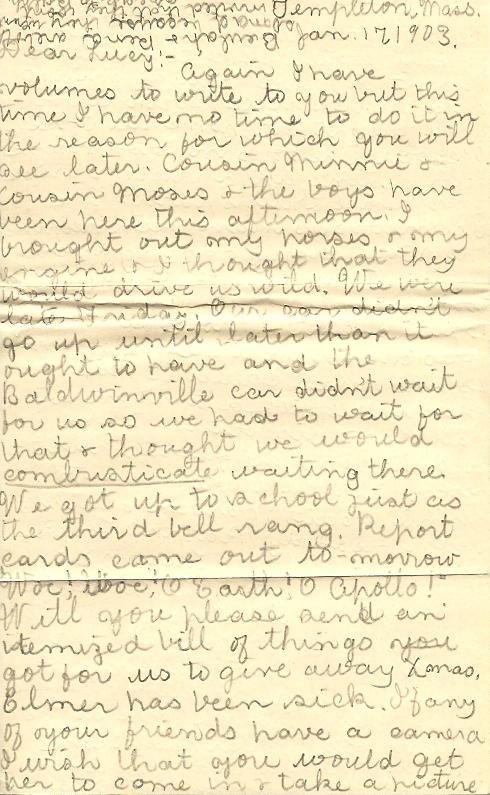 Templeton, Mass.
Jan. 17 1903.
Dear Lucy:-
Again I have
volumes to write to you but this
time I have no time to do it in
the reason for which you will
see later. Cousin Minnie &
Cousin Moses & the boys have
been here this afternoon. I
brought out my horses & my
engine & I thought that they
would drive us wild. We were
late Friday. Our car didn't
go up until later than it
ought to have and the
Baldwinville car didn't wait
for us so we had to wait for
that & thought we would
combusticate waiting there.
We got up to school just as
the third bell rang. Report
cards came out to-morrow
Woe! Woe! O Earth! O Apollo!
Will you please send an
itemized bill of things you
got for us to give away Xmas.
Elmer has been sick. If any
of your friends have a camera
I wish that you would get
her to come in & take a picture